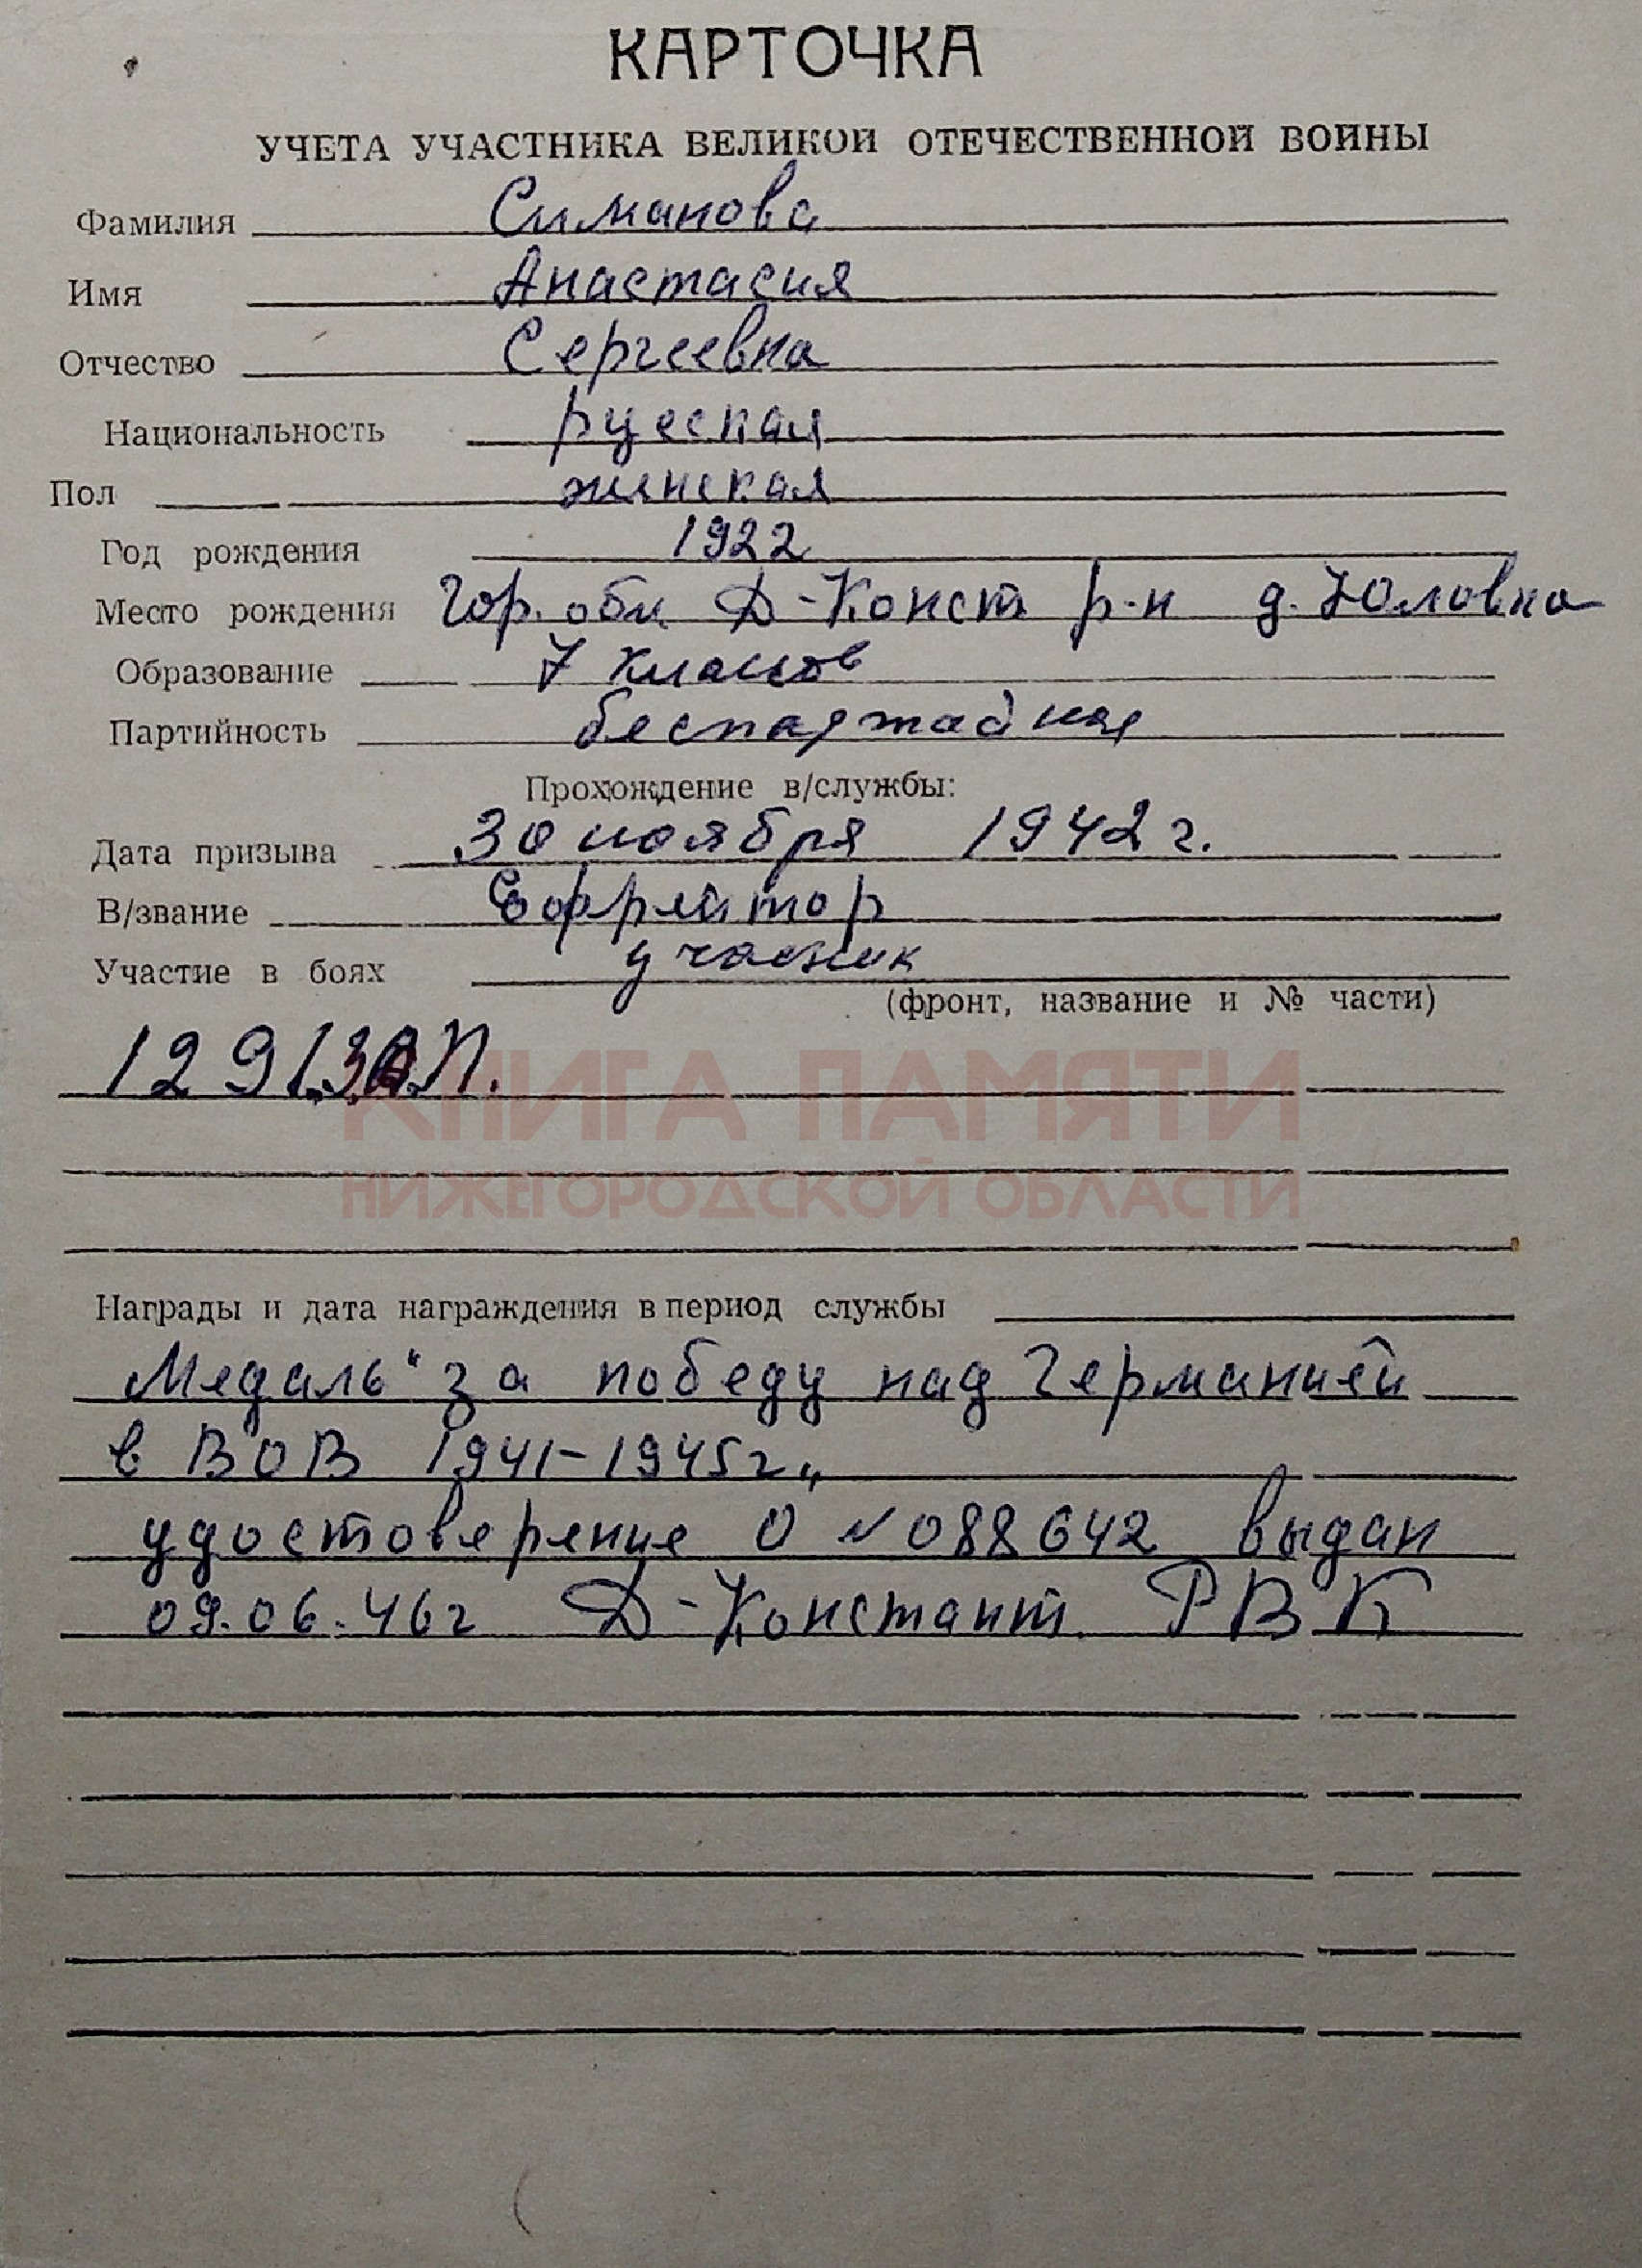 КАРТОЧКА
УЧЕТА УЧАСТНИКА ВЕЛИКОЙ ОТЕЧЕСТВЕННОЙ ВОЙНЫ
Фамилия Симанова
Имя Анастасия
Отчество Сергеевна
Национальность русская
Пол женская
Год рождения 1922
Место рождения Гор. обл Д-Конст р-н д. Юловка
Образование 7 классов
Партийность
Прохождение в/службы:
Дата призыва 30 ноября 1942 г.
В/звание Ефрейтор
Участие в боях участник
(фронт, название и № части)
1291 З.А.П.
КНИГА ПАМЯТИ
НИЖЕГОРОДСКОЙ ОБЛАСТИ
Награды и дата награждения в период службы
Медаль "за победу над Германией
в ВОВ 1941-1945г"
удостоверение О № 088642 выдан
09.06.46г Д-Констант. РВК